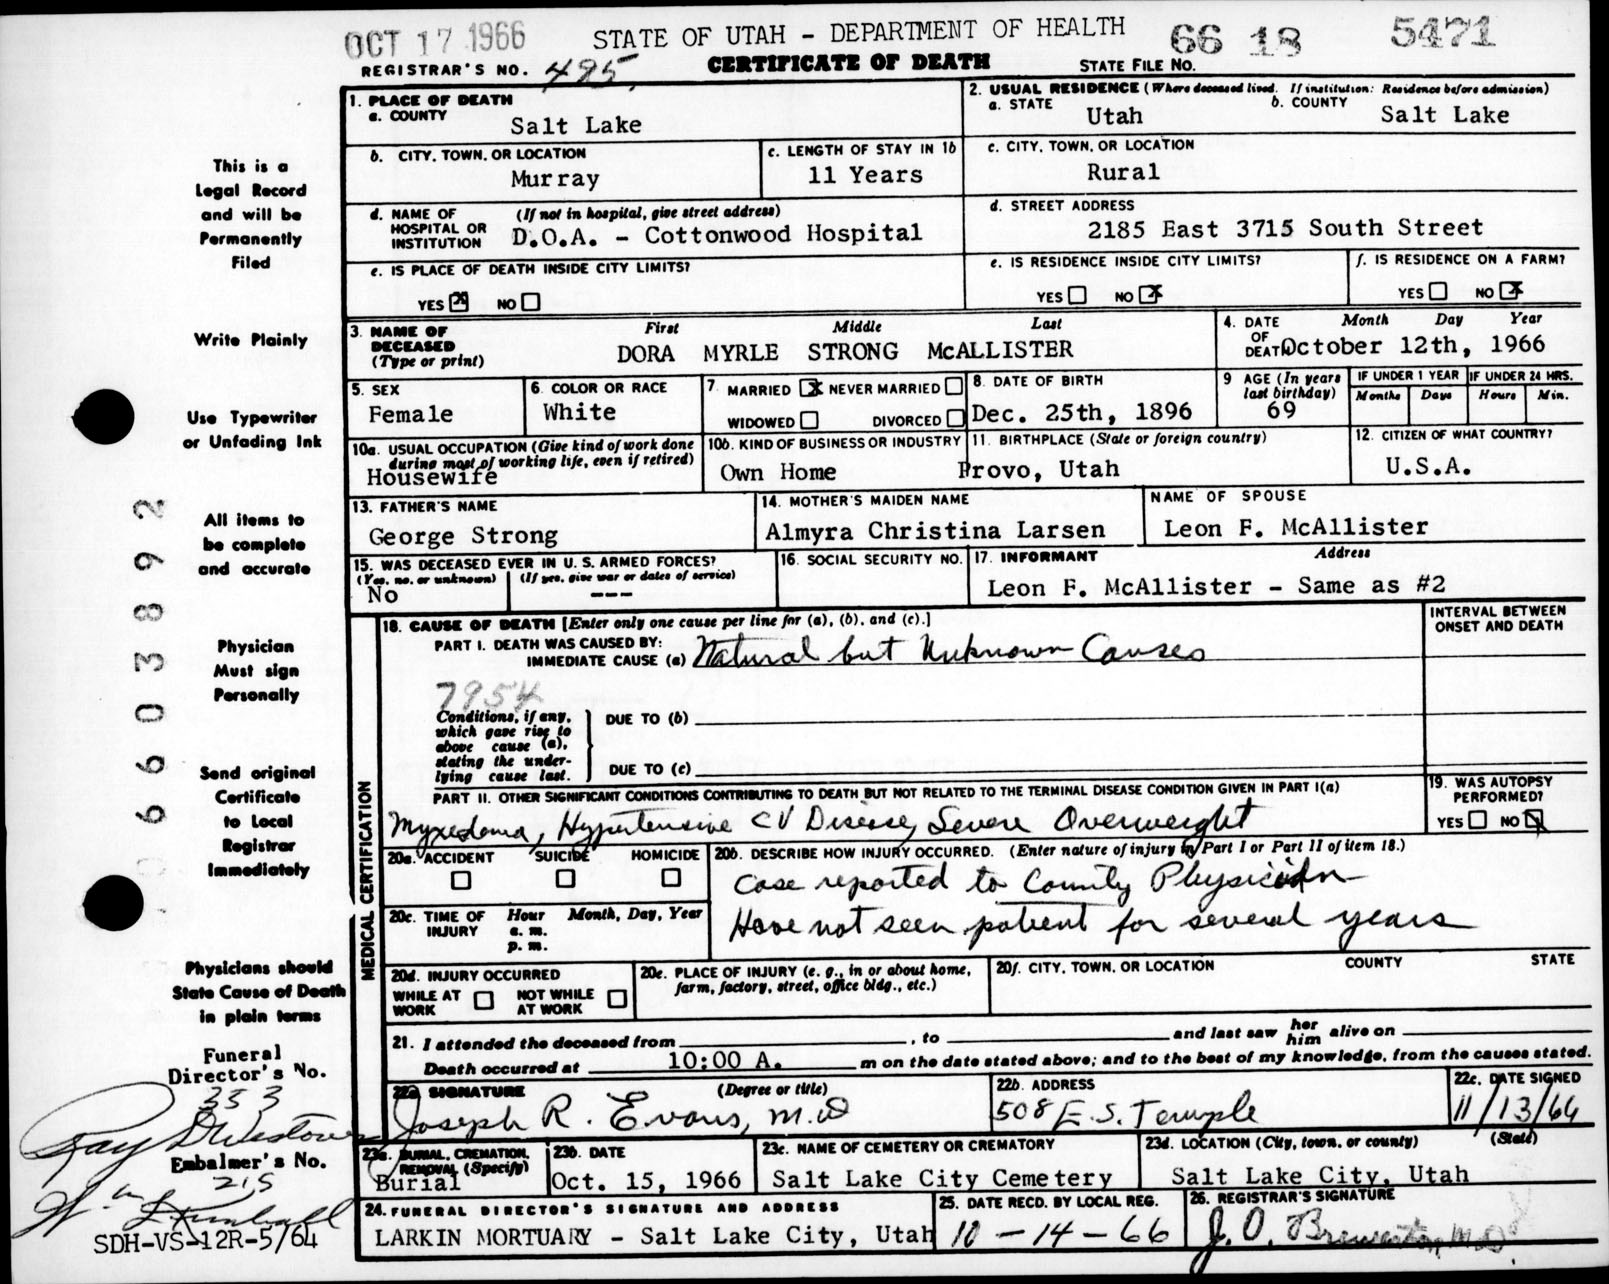 OCT 17 1966 STATE OF UTAH - DEPARTMENT OF HEALTH 66 18 5471
REGISTRAR'S NO. 495 CERTIFICATE OF DEATH STATE FILE NO.
1. PLACE OF DEATH
a. COUNTY
Salt Lake
2. USUAL RESIDENCE (Where deceased lived. If institution: Residence before admission)
a. STATE Utah b. COUNTY Salt Lake
b. CITY, TOWN, OR LOCATION
Murray
c. LENGTH OF STAY IN 1b
11 Years
c. CITY, TOWN, OR LOCATION
Rural
d. NAME OF HOSPITAL OR INSTITUTION (If not in hospital, give street address)
D.O.A. - Cottonwood Hospital
d. STREET ADDRESS
2185 East 3715 South Street
e. IS PLACE OF DEATH INSIDE CITY LIMITS?
YES X NO
e. IS RESIDENCE INSIDE CITY LIMITS?
YES NO X
f. IS RESIDENCE ON A FARM?
YES NO X
3. NAME OF DECEASED (Type or print) First Middle Last
DORA MYRLE STRONG McALLISTER
4. DATE OF DEATH Month Day Year
October 12th, 1966
5. SEX
Female
6. COLOR OR RACE
White
7. MARRIED X NEVER MARRIED
WIDOWED DIVORCED
8. DATE OF BIRTH
Dec. 25th, 1896
9 AGE (In years last birthday)
69
IF UNDER 1 YEAR IF UNDER 24 HRS.
Months Days Hours Min.
10a. USUAL OCCUPATION (Give kind of work done during most of working life, even if retired)
Housewife
10b. KIND OF BUSINESS OR INDUSTRY
Own Home
11. BIRTHPLACE (State or foreign country)
Provo, Utah
12. CITIZEN OF WHAT COUNTRY?
U.S.A.
13. FATHER'S NAME
George Strong
14. MOTHER'S MAIDEN NAME
Almyra Christina Larsen
NAME OF SPOUSE
Leon F. McAllister
15. WAS DECEASED EVER IN U. S. ARMED FORCES?
(Yes, no, or unknown) (If yes, give war or dates of service)
No ---
16. SOCIAL SECURITY NO.
17. INFORMANT Address
Leon F. McAllister - Same as #2
MEDICAL CERTIFICATION
18. CAUSE OF DEATH [Enter only one cause per line for (a), (b), and (c).]
INTERVAL BETWEEN ONSET AND DEATH
PART I. DEATH WAS CAUSED BY:
IMMEDIATE CAUSE (a) Natural but Unknown Causes
7954
Conditions, if any, which gave rise to above cause (a), stating the underlying cause last.
DUE TO (b)
DUE TO (c)
PART II. OTHER SIGNIFICANT CONDITIONS CONTRIBUTING TO DEATH BUT NOT RELATED TO THE TERMINAL DISEASE CONDITION GIVEN IN PART I(a)
Myxedema, Hypertensive CV Disease, Severe Overweight
19. WAS AUTOPSY PERFORMED?
YES NO X
20a. ACCIDENT SUICIDE HOMICIDE
20b. DESCRIBE HOW INJURY OCCURRED. (Enter nature of injury in Part I or Part II of item 18.)
Case reported to County Physician
Have not seen patient for several years
20c. TIME OF INJURY Hour Month, Day, Year
a. m.
p. m.
20d. INJURY OCCURRED
WHILE AT WORK NOT WHILE AT WORK
20e. PLACE OF INJURY (e. g., in or about home, farm, factory, street, office bldg., etc.)
20f. CITY, TOWN, OR LOCATION COUNTY STATE
21. I attended the deceased from , to and last saw her him alive on
Death occurred at 10:00 A. m on the date stated above; and to the best of my knowledge, from the causes stated.
22a SIGNATURE (Degree or title)
Joseph R. Evans, M.D
22b. ADDRESS
508 E. S. Temple
22c. DATE SIGNED
11/13/66
23a. BURIAL, CREMATION, REMOVAL (Specify)
Burial
23b. DATE
Oct. 15, 1966
23c. NAME OF CEMETERY OR CREMATORY
Salt Lake City Cemetery
23d. LOCATION (City, town, or county) (State)
Salt Lake City, Utah
24. FUNERAL DIRECTOR'S SIGNATURE AND ADDRESS
LARKIN MORTUARY - Salt Lake City, Utah
25. DATE RECD. BY LOCAL REG.
10-14-66
26. REGISTRAR'S SIGNATURE
J. O. Brewerton, M.D
This is a
Legal Record
and will be
Permanently
Filed
Write Plainly
Use Typewriter
or Unfading Ink
All items to
be complete
and accurate
Physician
Must sign
Personally
Send original
Certificate
to Local
Registrar
Immediately
Physicians should
State Cause of Death
in plain terms
Funeral
Director's No.
353
Ray
Embalmer's No.
215
Wm
SDH-VS-12R-5/64
6603892